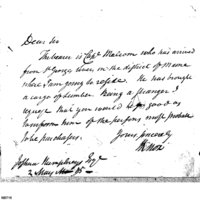 Dear Sir
The bearer is Capt. Malcom who has arrived
from St George river, in the district of Maine
where I am going to reside. He was brought
a cargo of lumber. Being a stranger I
request that you would be so good as
to inform him of the persons most probable
to be purchasers.
Yours sincerely
H Knox
Joshua Humphreys Esqr
2 May 95